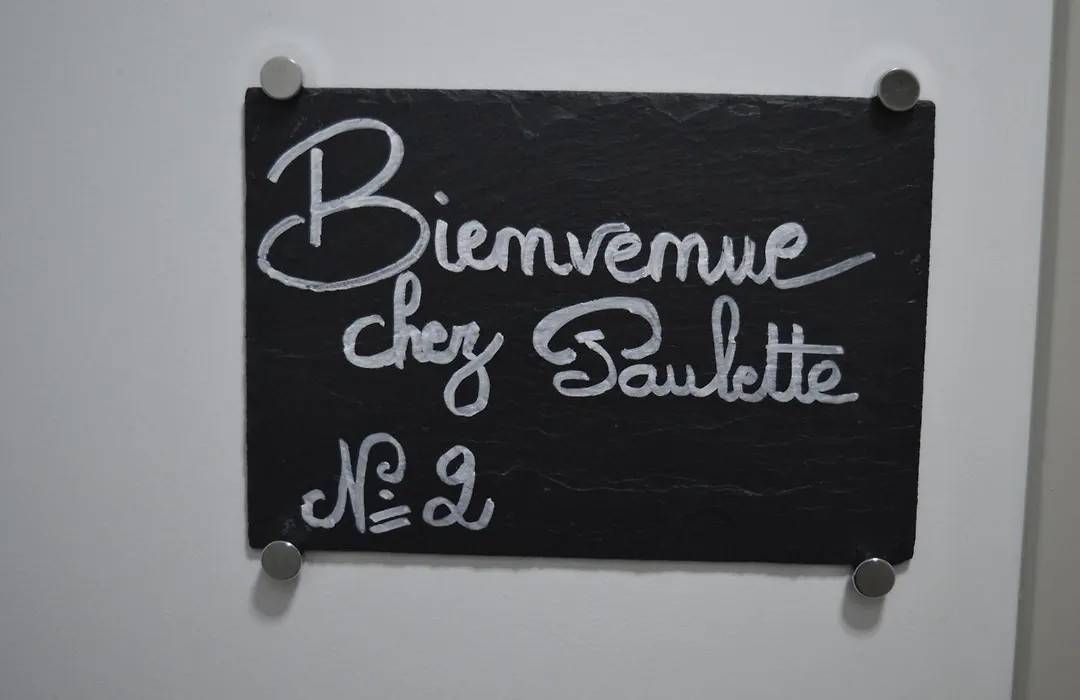 Bienvenue
chez Paulette
№ 2